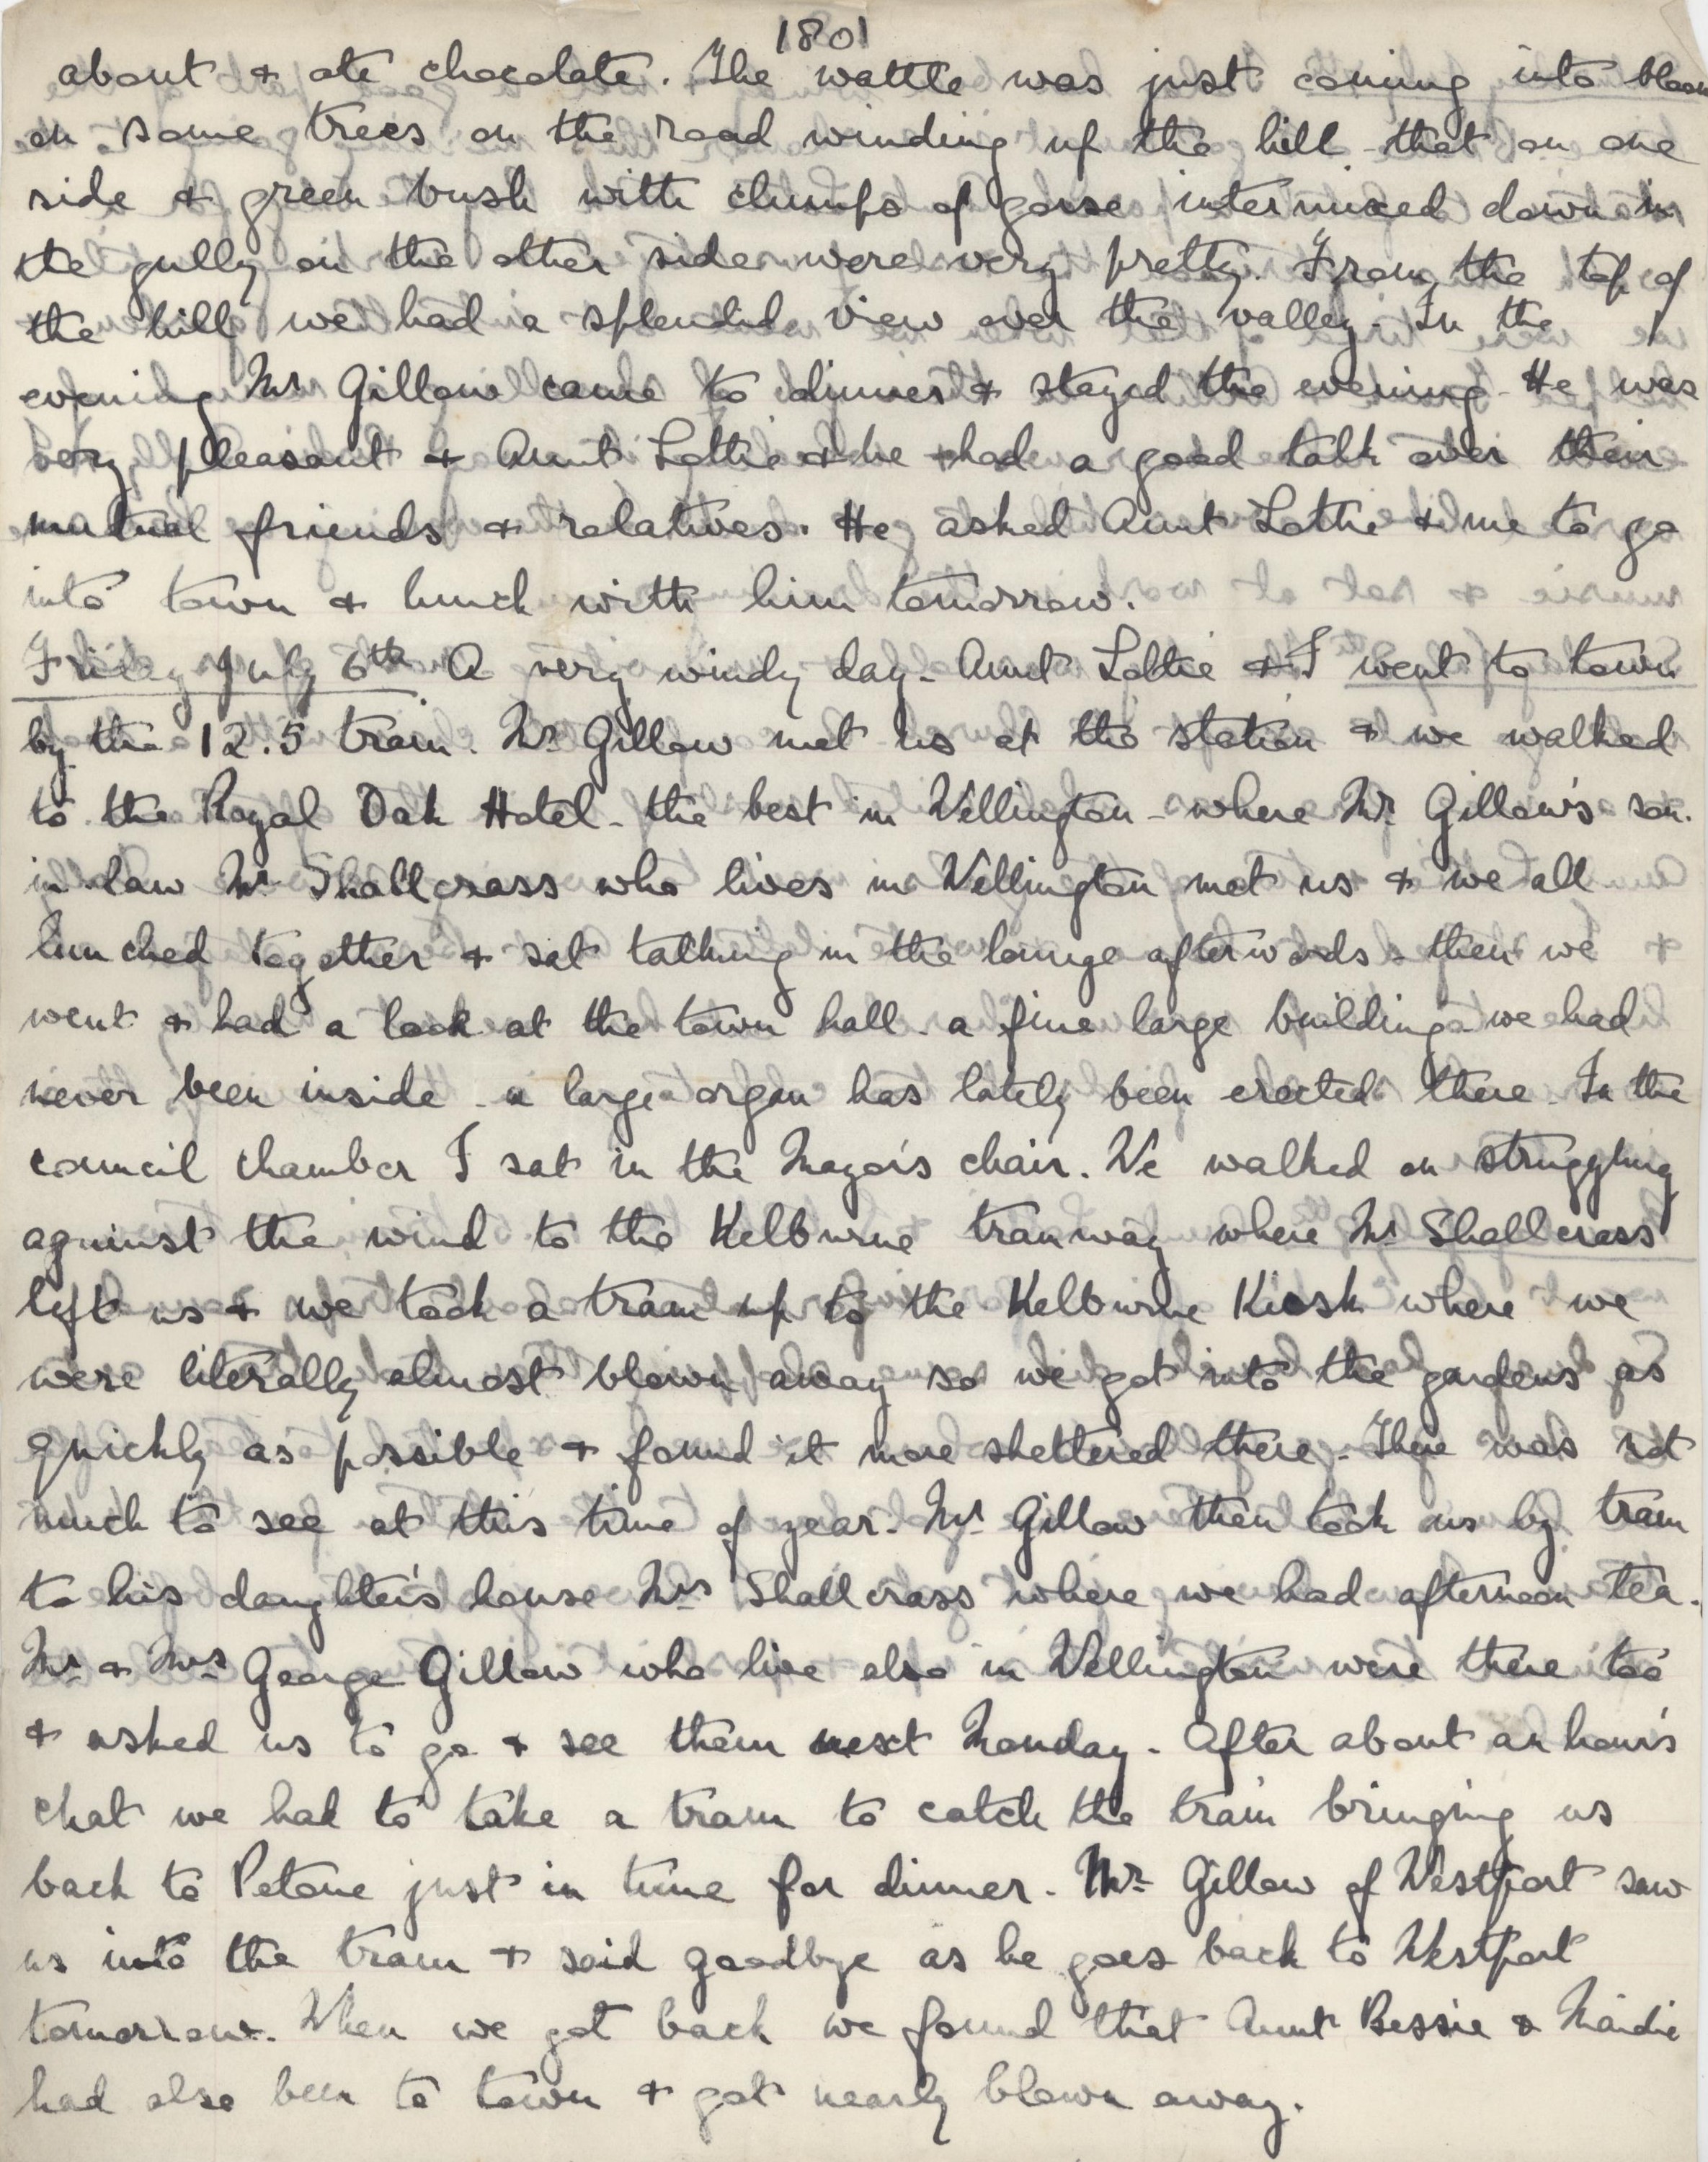 1801
about & ate chocolate. The wattle was just coming into bloom
on some trees on the road winding up the hill that on one
side & green bush with clumps of gorse intermixed down in
the gully on the other side were very pretty. From the top of
the hill we had a splendid view over the valley. In the
evening Mr Gillow came to dinner & stayed the evening. He was
very pleasant & Aunt Lottie & he had a good talk over their
mutual friends & relatives. He asked Aunt Lottie & me to go
into town & lunch with him tomorrow.
Friday July 6th A very windy day. Aunt Lottie & I went to town
by the 12.5 train. Mr Gillow met us at the station & we walked
to the Royal Oak Hotel - the best in Wellington - where Mr Gillow's son-
in-law Mr Shallcrass who lives in Wellington met us & we all
lunched together & sat talking in the lounge afterwards - then we
went & had a look at the town hall - a fine large building - we had
never been inside - a large organ has lately been erected there. In the
council chamber I sat in the Mayor's chair. We walked on struggling
against the wind to the Kelburne tramway where Mr Shallcrass
left us & we took a tram up to the Kelburne Kiosk where we
were literally almost blown away so we got into the gardens as
quickly as possible & found it more sheltered there. There was not
much to see at this time of year. Mr Gillow then took us by tram
to his daughter's house Mrs Shallcrass where we had afternoon tea.
Mr & Mrs George Gillow who live also in Wellington were there too
& asked us to go & see them next Monday. After about an hour's
chat we had to take a tram to catch the train bringing us
back to Petone just in time for dinner. Mr Gillow of Westport saw
us into the tram & said goodbye as he goes back to Westport
tomorrow. When we got back we found that Aunt Bessie & Maidie
had also been to town & got nearly blown away.